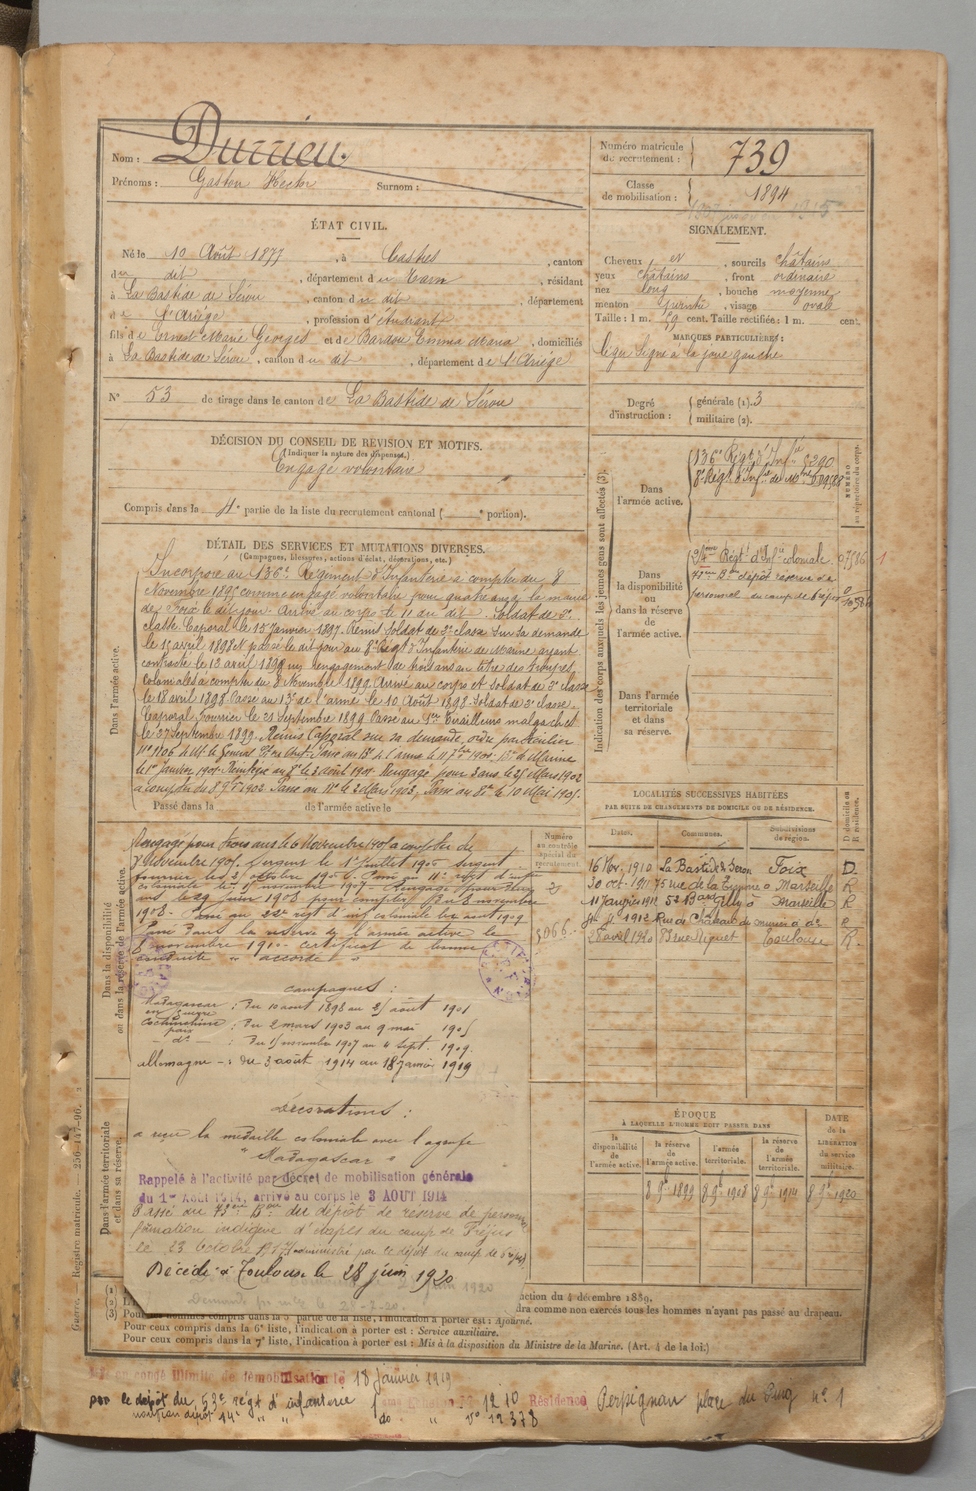 Nom : Durrieu.
Prénoms : Gaston Hector Surnom :
Numéro matricule du recrutement : 739
Classe de mobilisation : 1894
ÉTAT CIVIL.
Né le 10 Août 1877, à Castres, canton
du dit, département du Tarn, résidant
à La Bastide de Sérou, canton du dit, département
de l'Ariège, profession d'étudiant
fils de Ernest Marie Georges et de Bardou Emma Maria, domiciliés
à La Bastide de Sérou, canton du dit, département de l'Ariège
N° 53 de tirage dans le canton de La Bastide de Sérou
SIGNALEMENT.
Cheveux et, sourcils châtains
yeux châtains, front ordinaire
nez long, bouche moyenne
menton pointu, visage ovale
Taille : 1 m. 59 cent. Taille rectifiée : 1 m. cent.
MARQUES PARTICULIÈRES :
léger signe à la joue gauche
Degré d'instruction : générale (1). 3
militaire (2).
DÉCISION DU CONSEIL DE RÉVISION ET MOTIFS.
(Indiquer la nature des dispenses.)
Engagé volontaire
Compris dans la 4e partie de la liste du recrutement cantonal ( e portion).
DÉTAIL DES SERVICES ET MUTATIONS DIVERSES.
(Campagnes, blessures, actions d'éclat, décorations, etc.)
Dans l'armée active.
Incorporé au 136e Régiment d'Infanterie à compter du 8
Novembre 1895 comme engagé volontaire pour quatre ans à la mairie
de Foix le dit jour. Arrivé au corps le 11 du dit. Soldat de 2e
classe. Caporal le 15 Janvier 1897. Remis Soldat de 2e classe sur sa demande
le 15 avril 1898 et passé le dit jour au 8e Régt d'Infanterie de Marine ayant
contracté le 13 avril 1898 un rengagement de trois ans au titre des troupes
Coloniales à compter du 8 Novembre 1899. Arrivé au corps et Soldat de 2e classe
le 18 avril 1898. Passé au 13e de l'arme le 10 Août 1898. Soldat de 2e classe.
Caporal fourrier le 23 Septembre 1899. Passé au 1er Tirailleurs malgaches
le 27 Septembre 1899. Remis Caporal sur sa demande, ordre particulier
le 1er Janvier 1901. Réintégré au 8e le 3 août 1901. Rengagé pour 3 ans le 25 Mars 1902
à compter du 8 9bre 1902. Passé au 11e le 2 Mars 1903, Passé au 8e le 10 Mai 1905.
Passé dans la de l'armée active le
Indication des corps auxquels les jeunes gens sont affectés (3).
Dans l'armée active.
136e Régt d'Infie 5290
8e Régt d'Infie de Mne
NUMÉRO au répertoire du corps.
Dans la disponibilité ou dans la réserve de l'armée active.
Régt d'Infie coloniale 07586 1
75ème Bon dépôt réserve
personnel du camp de Fréjus
Dans l'armée territoriale et dans sa réserve.
LOCALITÉS SUCCESSIVES HABITÉES
PAR SUITE DE CHANGEMENTS DE DOMICILE OU DE RÉSIDENCE.
Dates. Communes. Subdivisions de région. D domicile ou R résidence.
16 Nov. 1910 La Bastide de Serou Foix D.
30 oct. 1911 75 rue de la à Marseille R
11 Janvier 1912 52 Bard Gilly à Marseille R
1912 Rue du Château do R
28 avril 1920 Riquet Toulouse R.
Dans la disponibilité ou dans la réserve de l'armée active.
Numéro au contrôle spécial du recrutement.
Rengagé pour trois ans le 6 Novembre 1905 à compter du
8 Novembre 1905. Sergent le 1er Juillet 1906 Sergent
fourrier le 21 octobre 1906. Passé au 11e régt d'infie
coloniale le 15 novembre 1907. Rengagé pour deux
ans le 29 juin 1908 pour compter du 8 novembre
1908. Passé au 22e régt d'inf coloniale le août 1909
Passé dans la réserve de l'armée active le
8 novembre 1910. certificat de bonne
conduite " accordé "
3066.
Campagnes :
Madagascar en guerre : du 10 août 1898 au 25 août 1901
Cochinchine paix : du 2 mars 1903 au 9 mai 1905
do : du 15 novembre 1907 au 4 sept. 1909
Allemagne : du 3 août 1914 au 18 janvier 1919
Décorations :
a reçu la médaille coloniale avec l'agrafe
"Madagascar"
Rappelé à l'activité par décret de mobilisation générale
du 1er Août 1914, arrivé au corps le 3 AOUT 1914
Passé au 75ème Bon du dépôt de réserve de personnel
formation indigène d'étapes du camp de Fréjus
le 23 Octobre 1917 (administré par le dépôt du camp de Fréjus)
Décédé à Toulouse le 28 juin 1920
Dans l'armée territoriale et dans sa réserve.
ÉPOQUE
À LAQUELLE L'HOMME DOIT PASSER DANS
la disponibilité de l'armée active. la réserve de l'armée active. l'armée territoriale. la réserve de l'armée territoriale. DATE de la LIBÉRATION du service militaire.
8 9bre 1899 8 9bre 1908 8 9bre 1914 8 9bre 1920
Guerre. — Registre matricule. — 256-147-96.
action du 4 décembre 1889.
dra comme non exercés tous les hommes n'ayant pas passé au drapeau.
(3) Pour les hommes compris dans la 5e partie de la liste, l'indication à porter est : Ajourné.
Pour ceux compris dans la 6e liste, l'indication à porter est : Service auxiliaire.
Pour ceux compris dans la 7e liste, l'indication à porter est : Mis à la disposition du Ministre de la Marine. (Art. 4 de la loi.)
en congé illimité de démobilisation le 18 Janvier 1919
par le dépôt du 53e régt d'infanterie 1210 Résidence Perpignan place du Puig n° 1
do " n° 12378